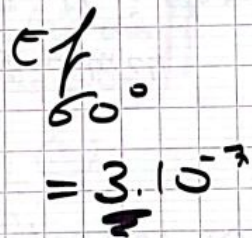 Ef
60°
= 3.10⁻⁷